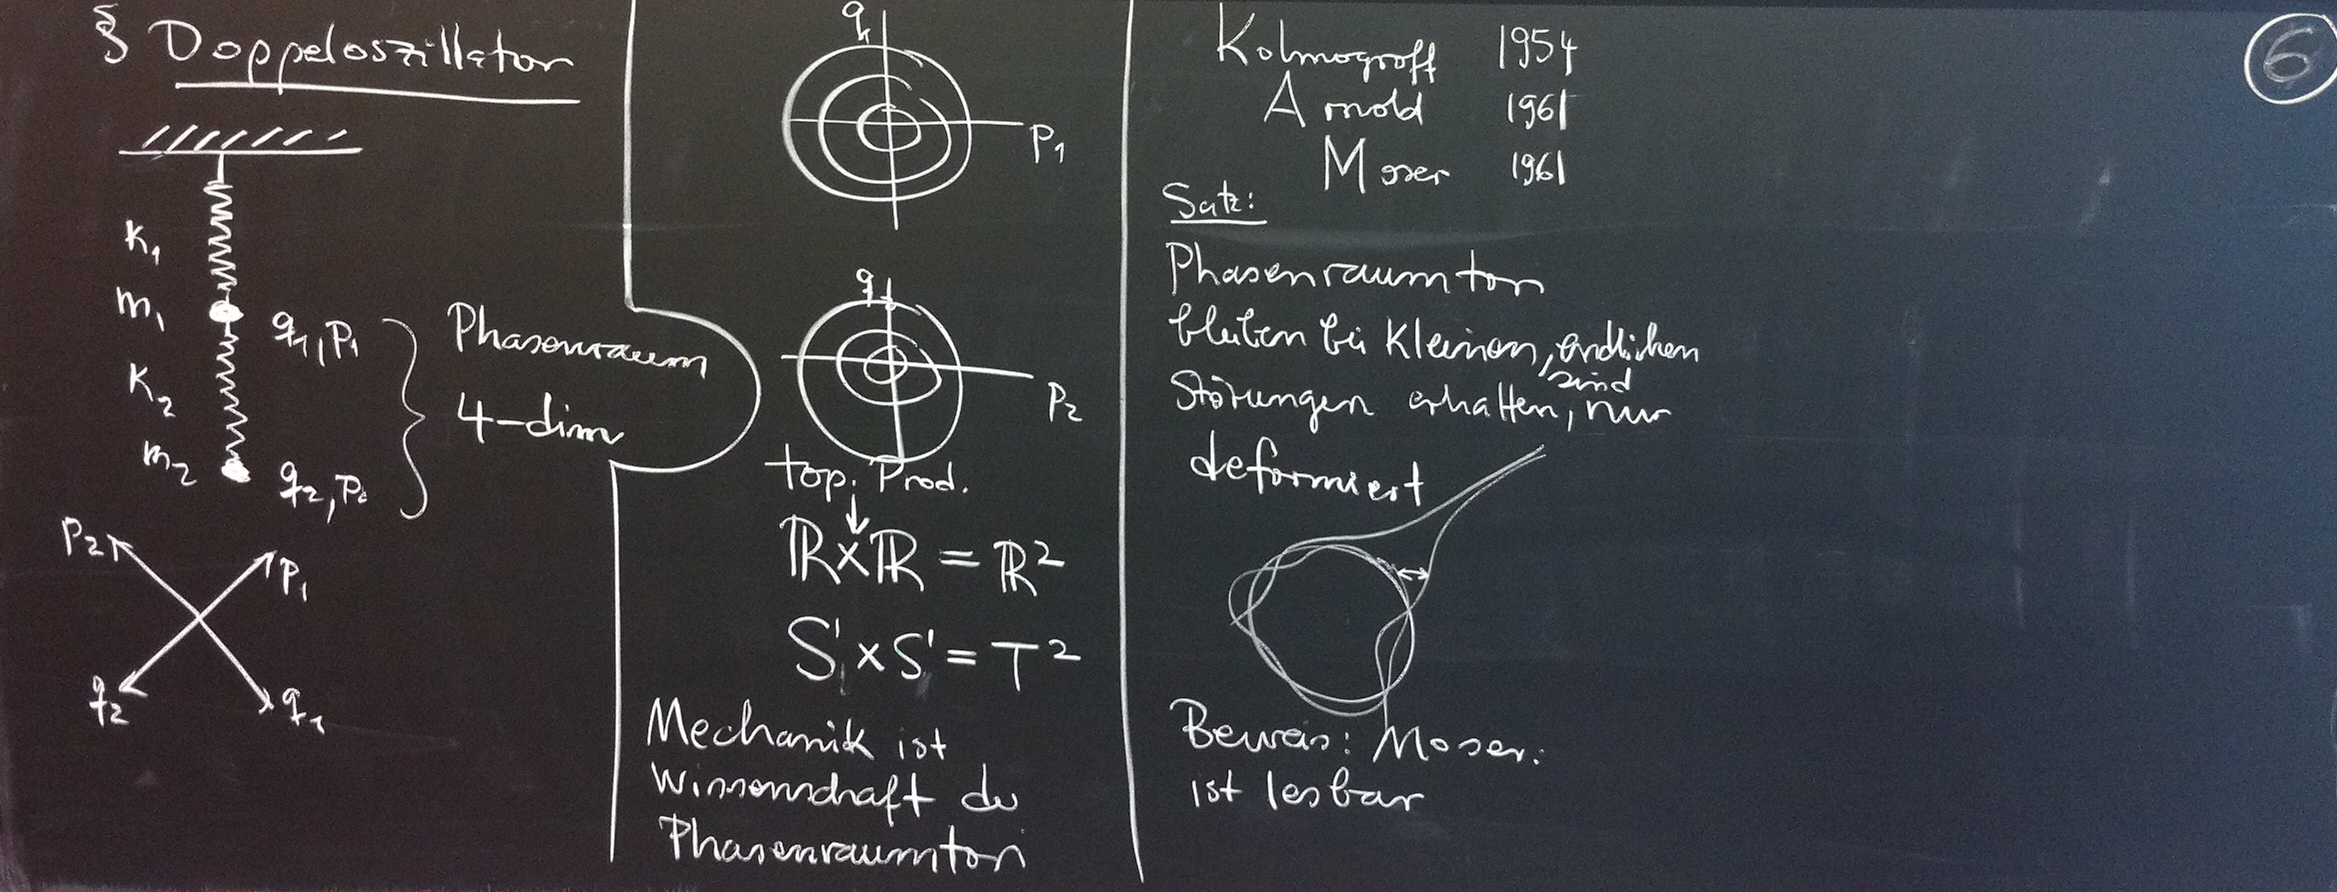 § Doppeloszillator
K₁
m₁
q₁, p₁
K₂
m₂
q₂, p₂
Phasenraum
4-dim
p₂
p₁
q₂
q₁
q₁
p₁
q₂
p₂
top. Prod.
↓
ℝ×ℝ = ℝ²
S¹×S¹ = T²
Mechanik ist
Wissenschaft der
Phasenraumtori
Kolmogroff 1954
Arnold 1961
Moser 1961
Satz:
Phasenraumtori
bleiben bei kleinen, endlichen
sind
Störungen erhalten, nur
deformiert
Beweis: Moser:
ist lesbar
6